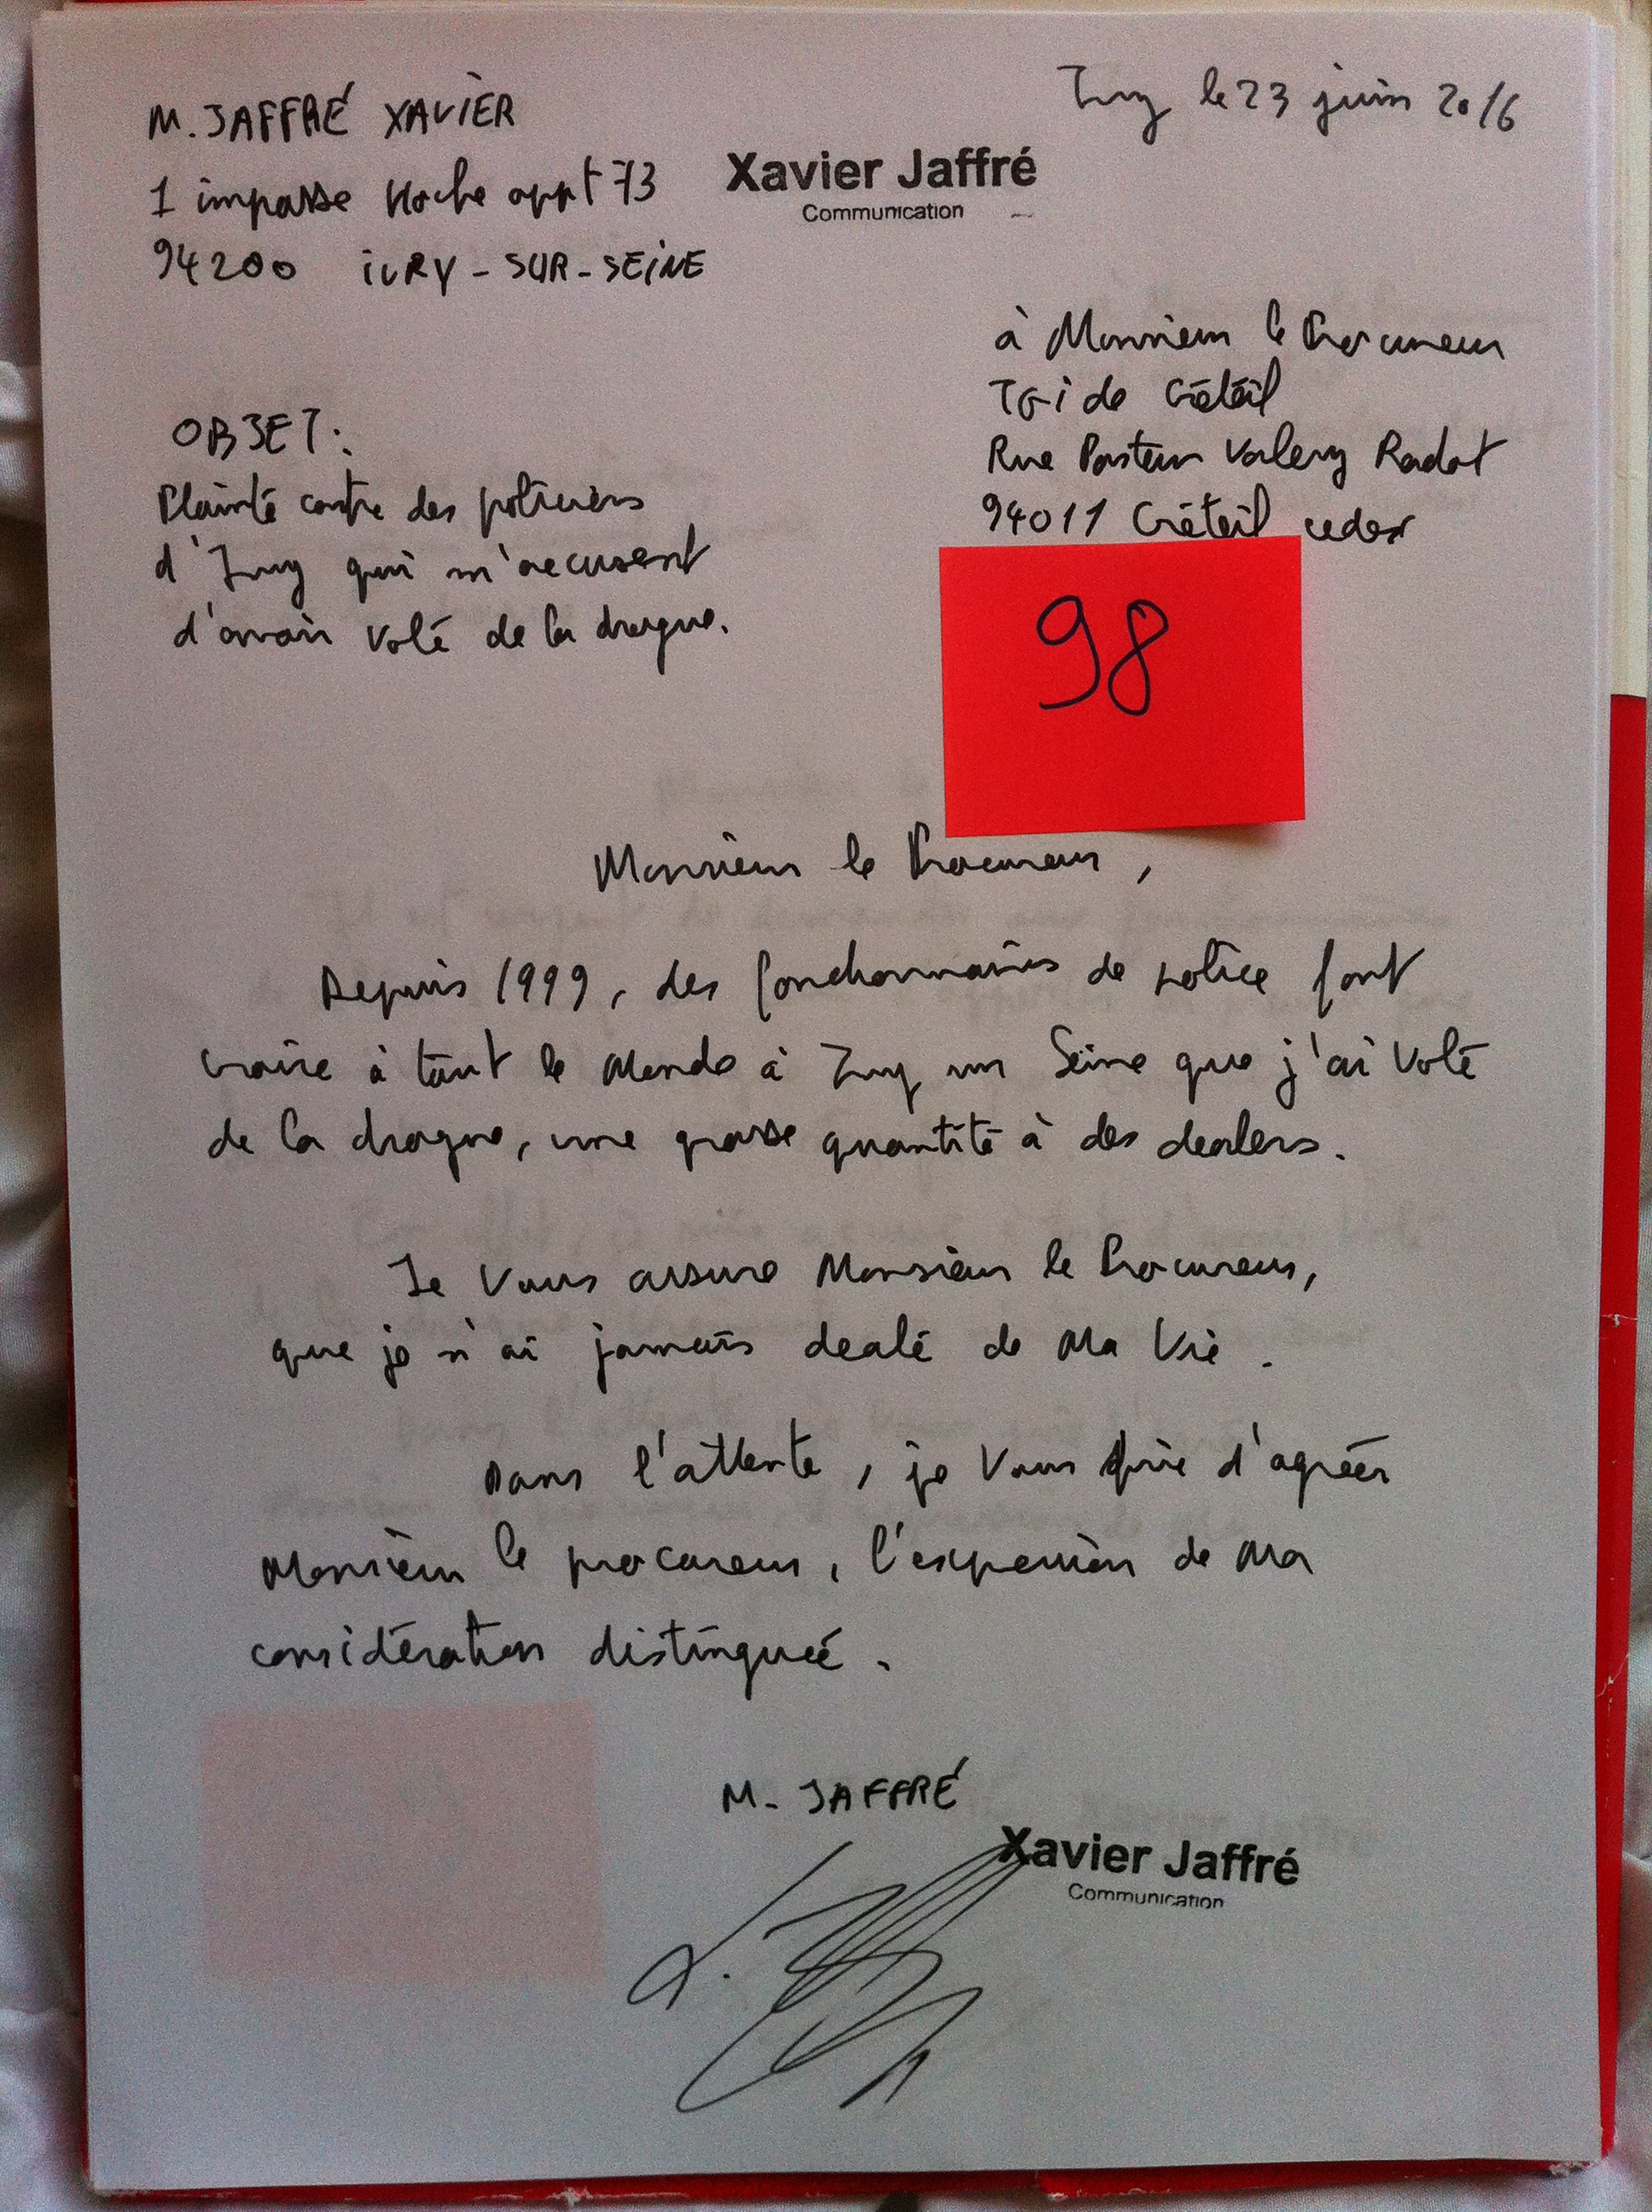 M. JAFFRÉ XAVIER
Ivry le 23 juin 2016
Xavier Jaffré
Communication
1 impasse Hoche appt 73
94200 IVRY-SUR-SEINE
à Monsieur le Procureur
TGI de Créteil
Rue Pasteur Valery Radot
94011 Créteil cedex
OBJET:
Plainte contre des policiers
d'Ivry qui m'accusent
d'avoir volé de la drogue.
98
Monsieur le Procureur,
Depuis 1999, des fonctionnaires de police font
croire à tout le Monde à Ivry sur Seine que j'ai Volé
de la drogue, une grosse quantité à des dealers.
Je Vous assure Monsieur le Procureur,
que je n'ai jamais dealé de Ma Vie.
Dans l'attente, je Vous prie d'agréer
Monsieur le procureur, l'expression de Ma
considération distinguée.
M. JAFFRÉ
Xavier Jaffré
Communication